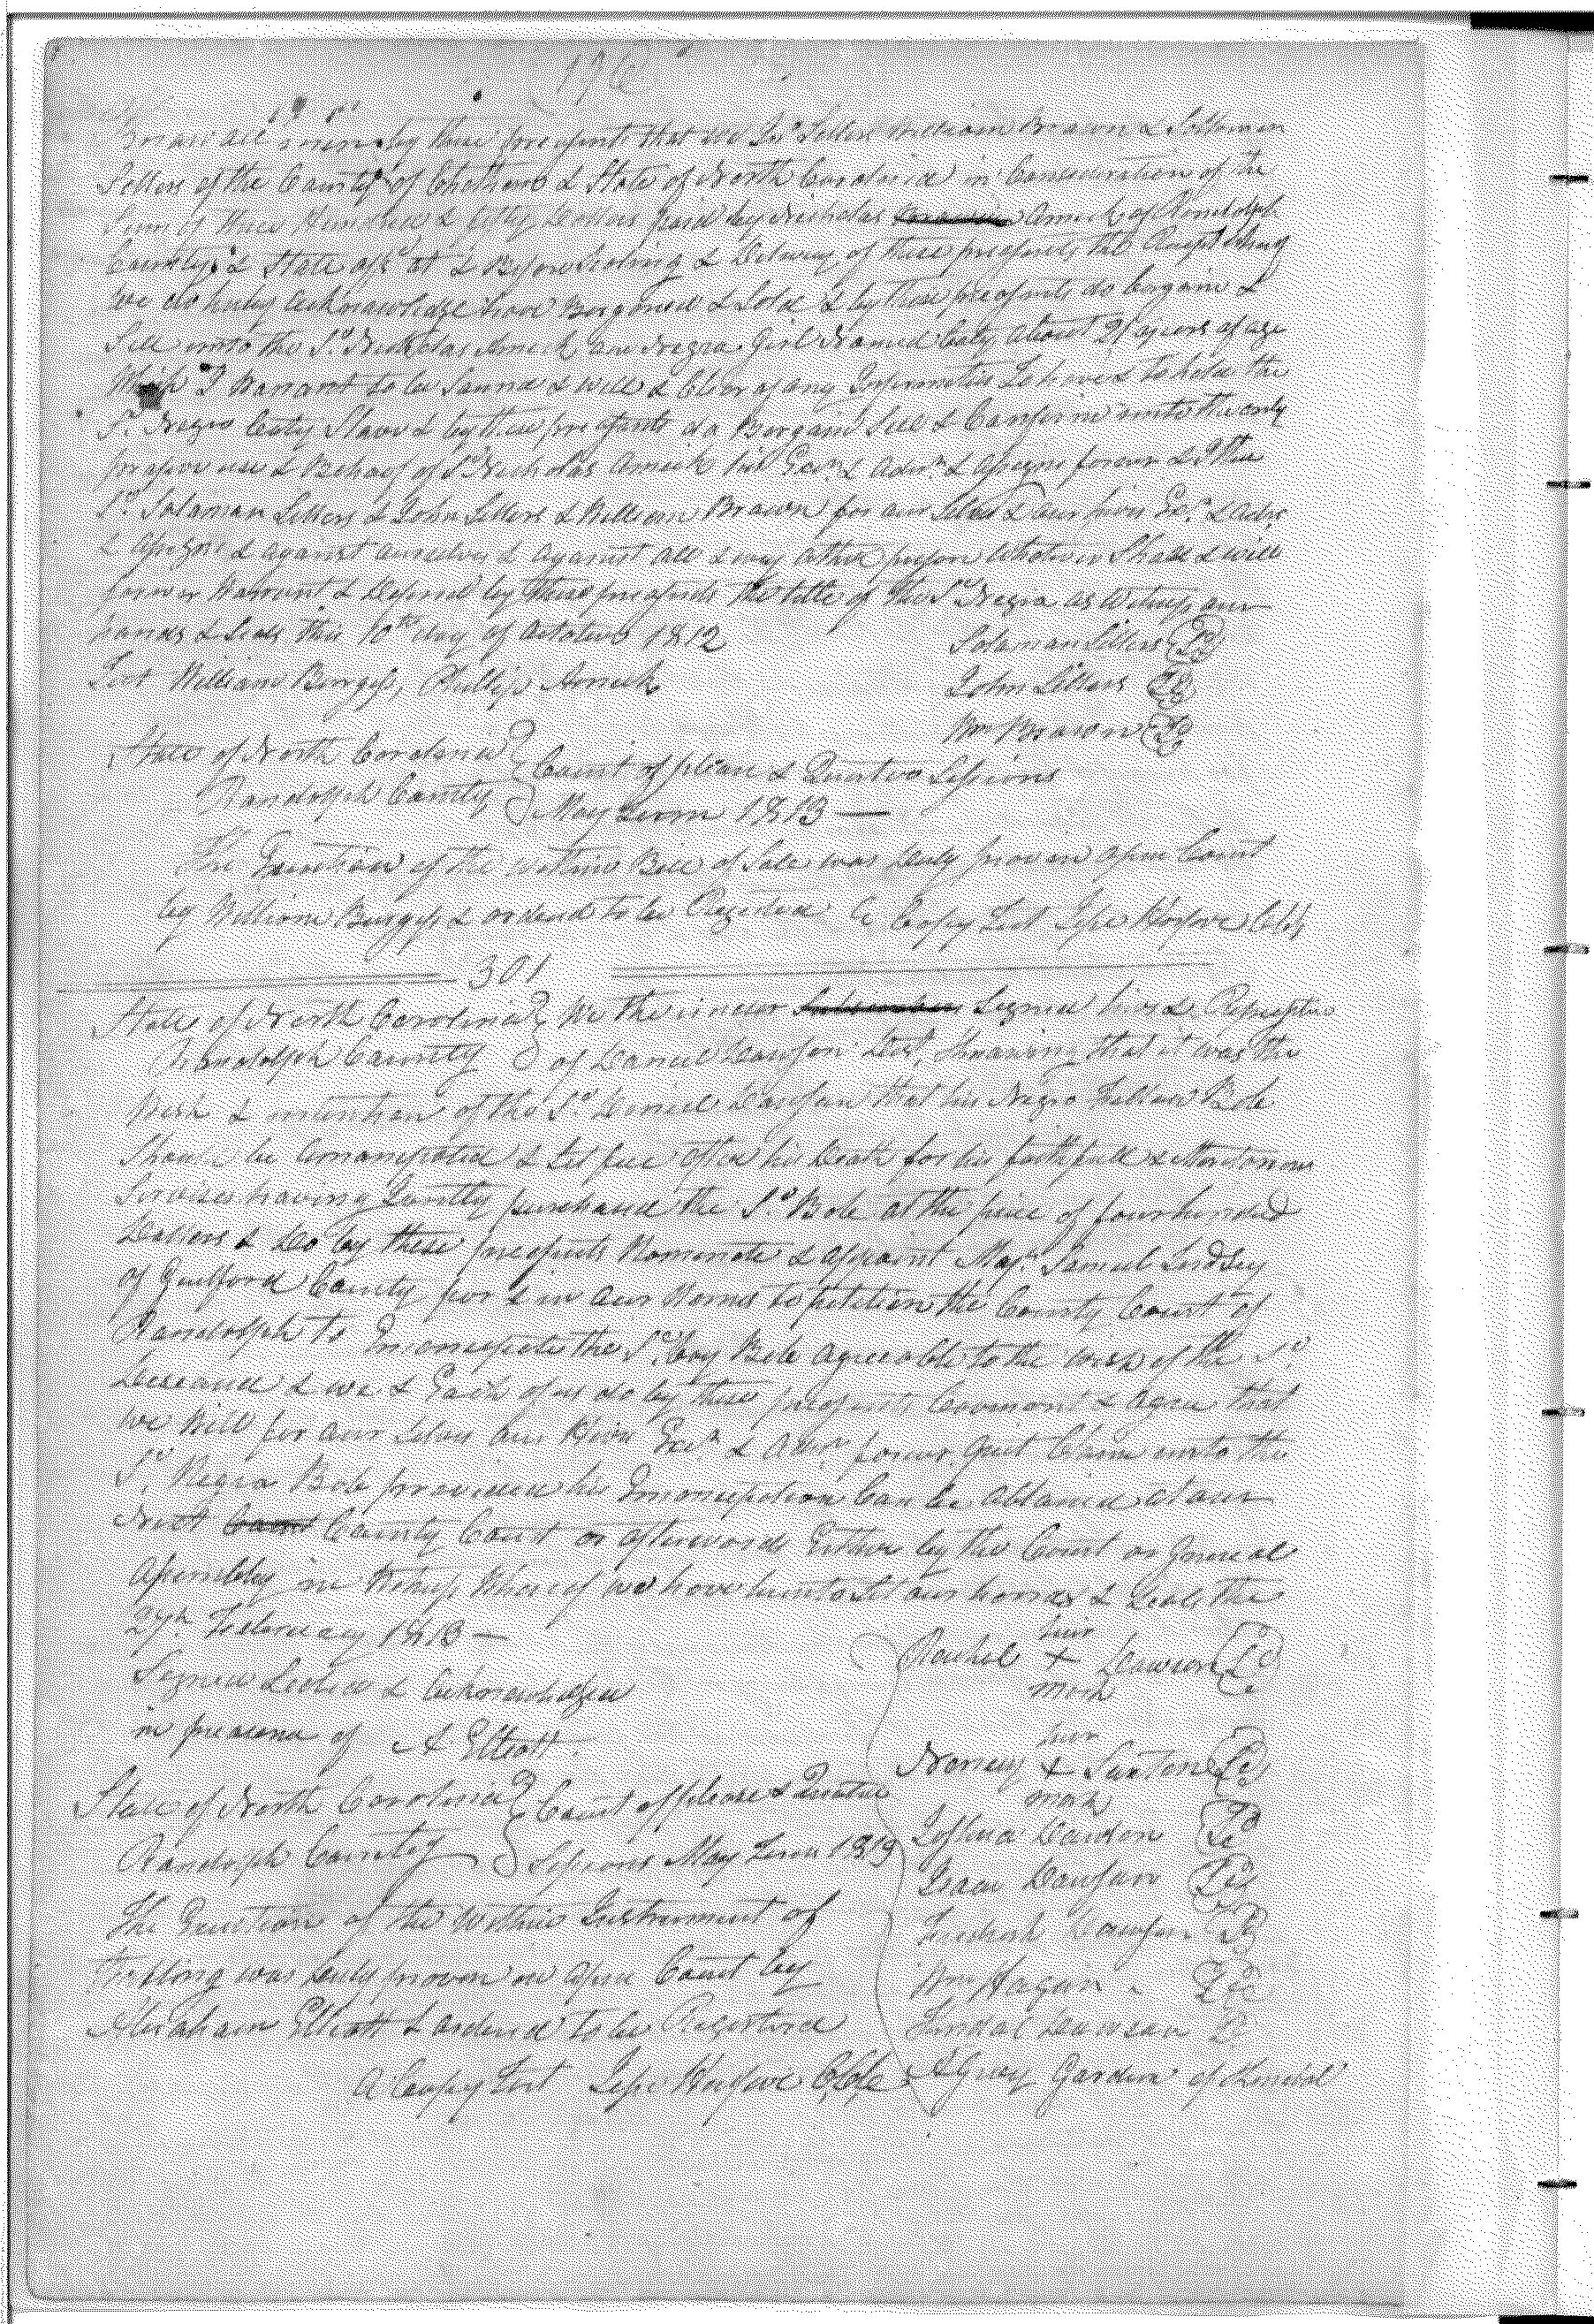 176
Know all men by these presents that we Jno Sellers William Brown & Soloman
Sellers of the County of Chatham & State of North Carolina in Consideration of the
Sum of three Hundred & fifty Dollars paid by Nicholas Amick of Randolph
County & State afsd at & Before Sealing & Delivery of these presents the Receipt whereof
we do hereby acknowledge have Bargened & Sold & by these presents do bargain &
Sell unto the Sd Nicholas Amick one Negro Girl Named Caty about 21 years of age
Which I Warrant to be Sound & well & Clear of any Infirmities To have & To hold the
Sd Negro Caty Slave & by these presents do Bargain Sell & Confirm unto the only
proper use & Behoof of Sd Nicholas Amick his Exrs & Admrs & assigns forever & the
Sd Soloman Sellers & John Sellers & William Brown for our Selves & our heirs Exrs & Admrs
& assigns & against ourselves & against all & every other person Whatever Shall & will
forever Warrant & Defend by these presents the title of the Sd Negro as Witness our
hands & Seals this 10th day of October 1812
Soloman Sellers
Test William Burgess, Phillip Amick
John Sellers
Wm Brown
State of North Carolina
Randolph County
Court of pleas & Quarter Sessions
May Term 1813 —
The Execution of the within Bill of Sale was duly proven in open Court
by William Burgess & ordered to be Registered A Copy Test Jesse Harper Clk
301
State of North Carolina We the under Signed heirs & Representives
Randolph County of Daniel Dawson Decd, Knowing that it was the
Wish & intention of the Sd Daniel Dawson that his Negro Fellow Bob
Should be Emancipated & Set free after his Death for his faithfull & Meritorious
Services having Jointly purchased the Sd Bob at the price of four hundred
Dollars & Do by these presents Nominate & appoint Majr Samuel Lindsey
of Guilford County for & in our Names to petition the County Court of
Randolph to Emancipate the Sd boy Bob agreeable to the wish of the Sd
Deceased & we & Each of us do by these presents Covenant & agree that
We Will for our Selves our Heirs Exrs & Admrs forever quit Claim unto the
Sd Negro Bob provided his Emancipation Can be obtained at our
Next County Court or afterwards Either by the Court or General
Assembly in Witness Whereof we have hereunto Set our hands & Seals the
27th February 1813 —
Rachel her + mark Dawson
Signed Sealed & acknowledged
in presence of A Elliott
Nancy her + mark Saxton
Joshua Dawson
Isaac Dawson
Wm Hagan
Dawson
State of North Carolina
Randolph County
Court of pleas & Quarter
Sessions May Term 1813
The Execution of the Within Instrument of
Writing was duly proven in open Court by
Abraham Elliott & ordered to be Registered
A Coppy Test Jesse Harper CC